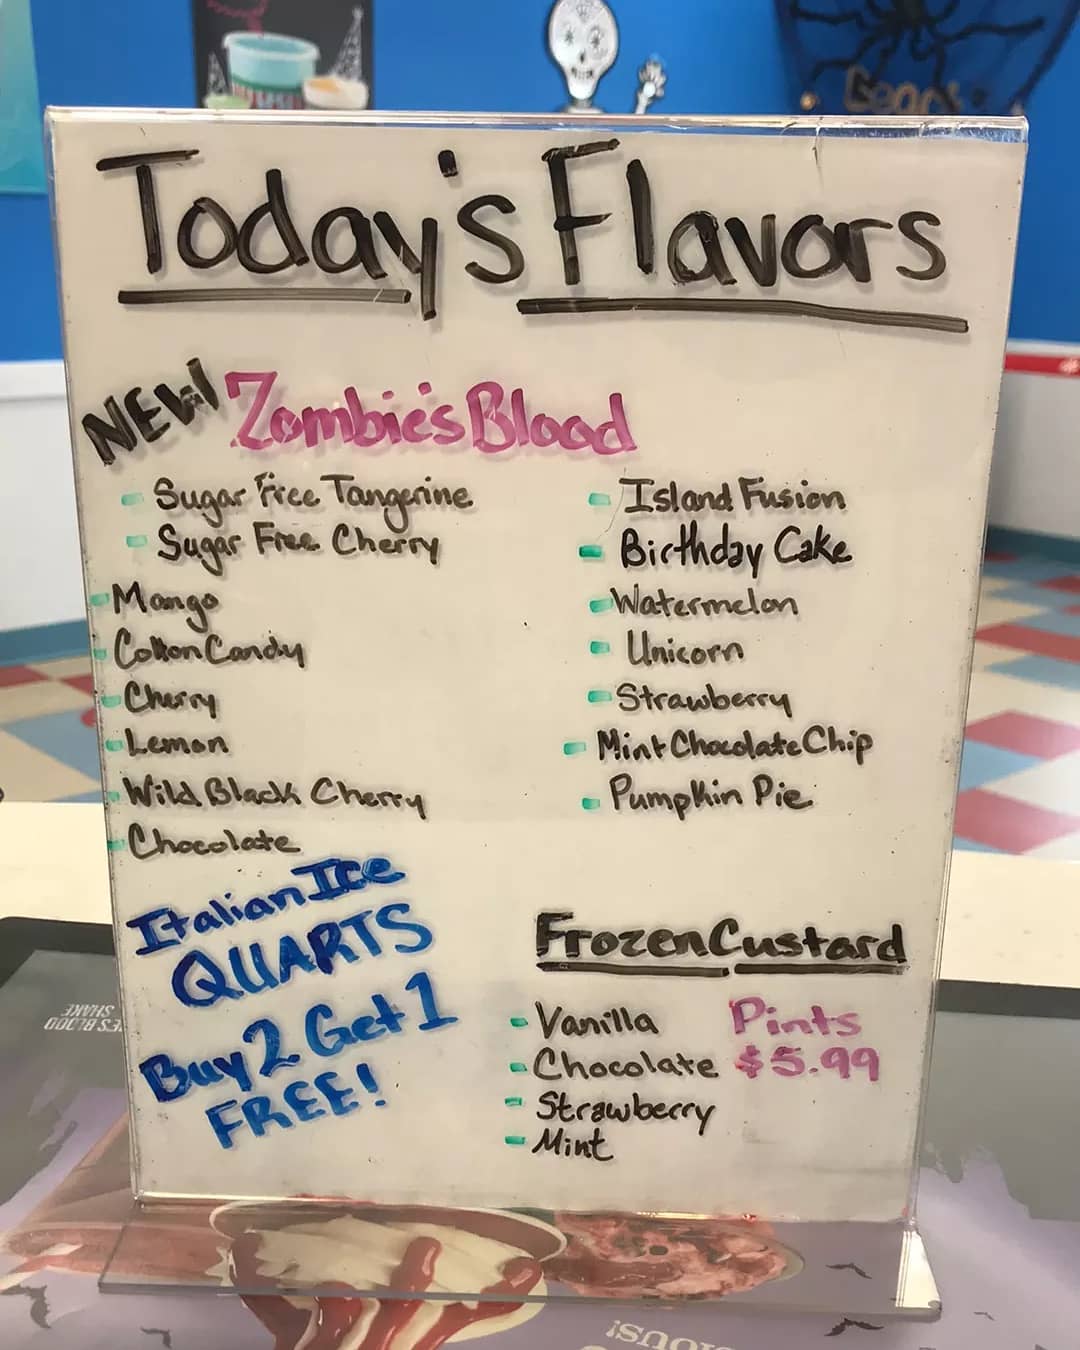 Today's Flavors
NEW Zombie's Blood
- Sugar Free Tangerine
- Sugar Free Cherry
- Mango
- Cotton Candy
- Cherry
- Lemon
- Wild Black Cherry
- Chocolate
- Island Fusion
- Birthday Cake
- Watermelon
- Unicorn
- Strawberry
- Mint Chocolate Chip
- Pumpkin Pie
Italian Ice
QUARTS
Buy 2 Get 1
FREE!
Frozen Custard
- Vanilla
- Chocolate
- Strawberry
- Mint
Pints
$5.99
SHAKE